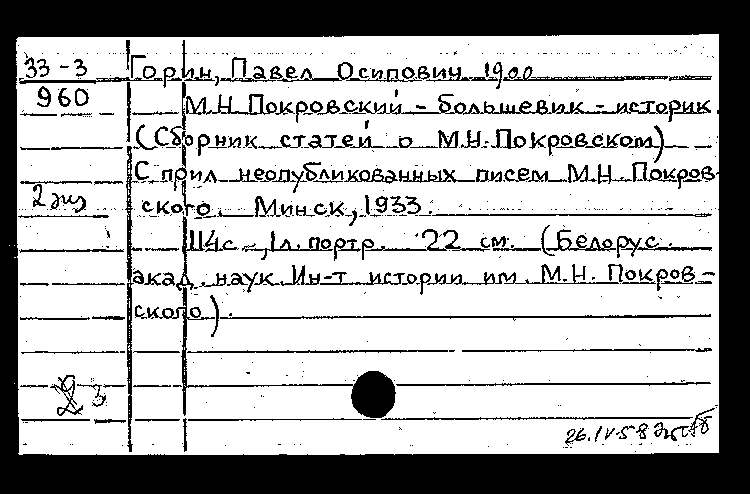 33-3 Горин, Павел Осипович 1900
960 М.Н. Покровский - большевик - историк.
(Сборник статей о М.Н. Покровском)
С прил неопубликованных писем М.Н. Покров-
2 экз ского. Минск, 1933.
114с., 1 л. портр. 22 см. (Белорус.
акад. наук. Ин-т истории им. М.Н. Покров-
ского).
3
26.IV-58